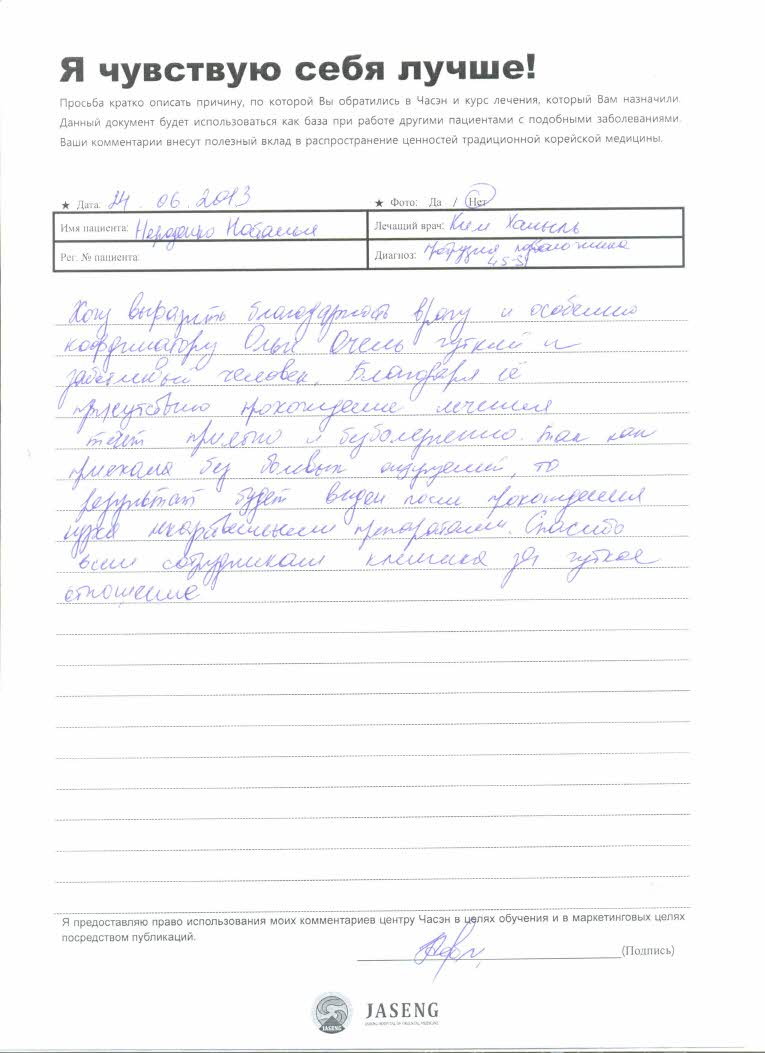 Я чувствую себя лучше!
Просьба кратко описать причину, по которой Вы обратились в Часэн и курс лечения, который Вам назначили.
Данный документ будет использоваться как база при работе другими пациентами с подобными заболеваниями.
Ваши комментарии внесут полезный вклад в распространение ценностей традиционной корейской медицины.
★ Дата: 24.06.2013 ★ Фото: Да / Нет
Имя пациента: Наталья Лечащий врач: Ким Ханыль
Рег. № пациента: Диагноз: Протрузия позвоночника
Хочу выразить благодарность врачу и особенно
координатору Ольги Очень чуткий и
заботливый человек. Благодаря её
присутствию прохождение лечения
течёт приятно и безболезненно. Так как
приехала без болевых ощущений, то
результат будет виден после прохождения
курса лекарственными препаратами. Спасибо
всем сотрудникам клиники за чуткое
отношение
Я предоставляю право использования моих комментариев центру Часэн в целях обучения и в маркетинговых целях
посредством публикаций.
(Подпись)
JASENG
JASENG
JASENG HOSPITAL OF ORIENTAL MEDICINE